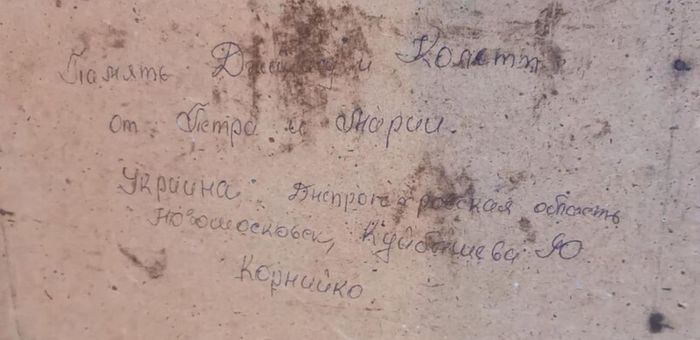 Память и Колетт
от Петра и Марии.
Украина Днепропетровская область
Новомосковск, Куйбышева
Корнийко